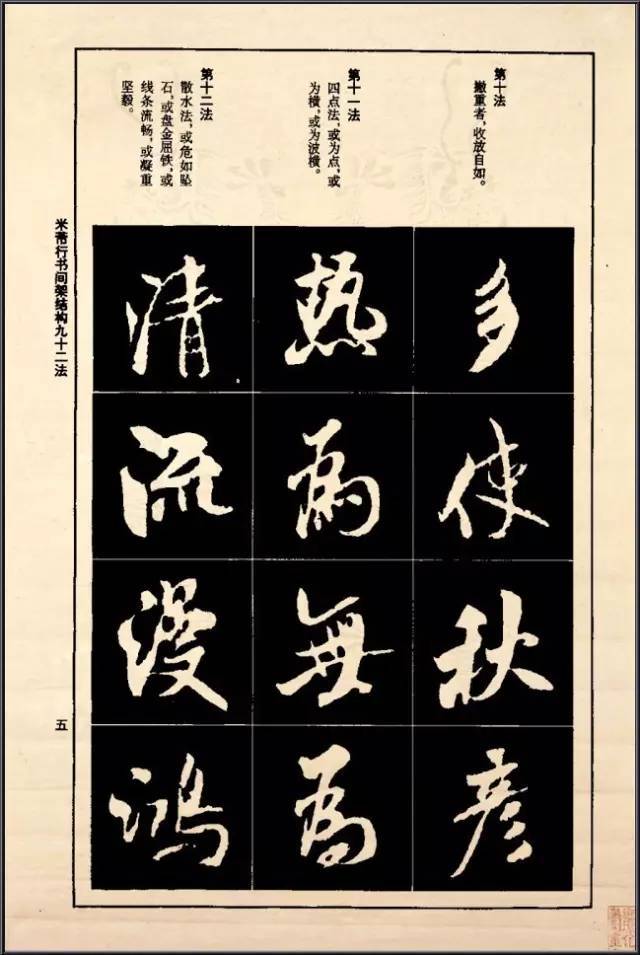 第十法
撇重者，收放自如。
第十一法
四点法，或为点，或
为横，或为波横。
第十二法
散水法，或危如坠
石，或盘金屈铁，或
线条流畅，或凝重
坚毅。
多使秋彦
热為無為
清流漫鴻
米芾行书间架结构九十二法
五